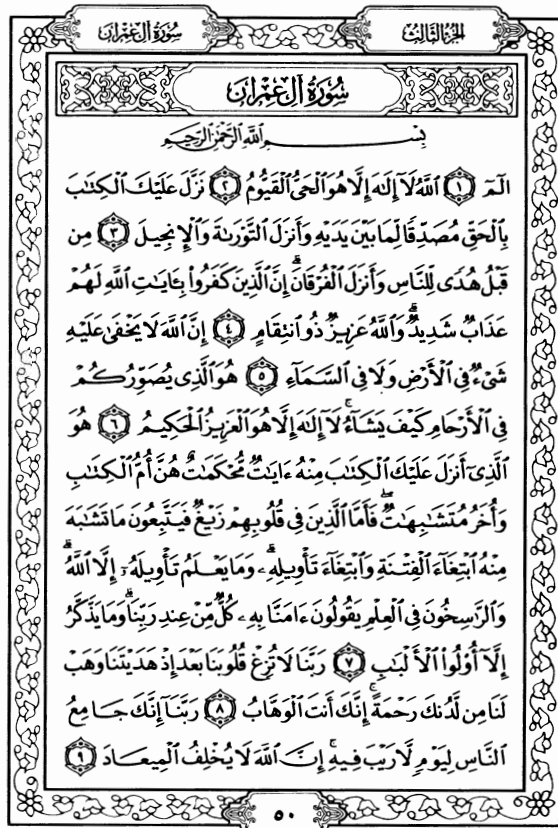 الجزء الثالث
سورة آل عمران
سُورَةُ آلِ عِمْرَان
بِسْمِ اللَّهِ الرَّحْمَٰنِ الرَّحِيمِ
الٓمٓ ۝١ ٱللَّهُ لَآ إِلَٰهَ إِلَّا هُوَ ٱلْحَىُّ ٱلْقَيُّومُ ۝٢ نَزَّلَ عَلَيْكَ ٱلْكِتَٰبَ
بِٱلْحَقِّ مُصَدِّقًا لِّمَا بَيْنَ يَدَيْهِ وَأَنزَلَ ٱلتَّوْرَىٰةَ وَٱلْإِنجِيلَ ۝٣ مِن
قَبْلُ هُدًى لِّلنَّاسِ وَأَنزَلَ ٱلْفُرْقَانَ ۗ إِنَّ ٱلَّذِينَ كَفَرُوا۟ بِـَٔايَٰتِ ٱللَّهِ لَهُمْ
عَذَابٌ شَدِيدٌ ۗ وَٱللَّهُ عَزِيزٌ ذُو ٱنتِقَامٍ ۝٤ إِنَّ ٱللَّهَ لَا يَخْفَىٰ عَلَيْهِ
شَىْءٌ فِى ٱلْأَرْضِ وَلَا فِى ٱلسَّمَآءِ ۝٥ هُوَ ٱلَّذِى يُصَوِّرُكُمْ
فِى ٱلْأَرْحَامِ كَيْفَ يَشَآءُ ۚ لَآ إِلَٰهَ إِلَّا هُوَ ٱلْعَزِيزُ ٱلْحَكِيمُ ۝٦ هُوَ
ٱلَّذِىٓ أَنزَلَ عَلَيْكَ ٱلْكِتَٰبَ مِنْهُ ءَايَٰتٌ مُّحْكَمَٰتٌ هُنَّ أُمُّ ٱلْكِتَٰبِ
وَأُخَرُ مُتَشَٰبِهَٰتٌ ۖ فَأَمَّا ٱلَّذِينَ فِى قُلُوبِهِمْ زَيْغٌ فَيَتَّبِعُونَ مَا تَشَٰبَهَ
مِنْهُ ٱبْتِغَآءَ ٱلْفِتْنَةِ وَٱبْتِغَآءَ تَأْوِيلِهِۦ ۗ وَمَا يَعْلَمُ تَأْوِيلَهُۥٓ إِلَّا ٱللَّهُ ۗ
وَٱلرَّٰسِخُونَ فِى ٱلْعِلْمِ يَقُولُونَ ءَامَنَّا بِهِۦ كُلٌّ مِّنْ عِندِ رَبِّنَا ۗ وَمَا يَذَّكَّرُ
إِلَّآ أُو۟لُوا۟ ٱلْأَلْبَٰبِ ۝٧ رَبَّنَا لَا تُزِغْ قُلُوبَنَا بَعْدَ إِذْ هَدَيْتَنَا وَهَبْ
لَنَا مِن لَّدُنكَ رَحْمَةً ۚ إِنَّكَ أَنتَ ٱلْوَهَّابُ ۝٨ رَبَّنَآ إِنَّكَ جَامِعُ
ٱلنَّاسِ لِيَوْمٍ لَّا رَيْبَ فِيهِ ۚ إِنَّ ٱللَّهَ لَا يُخْلِفُ ٱلْمِيعَادَ ۝٩
٥٠